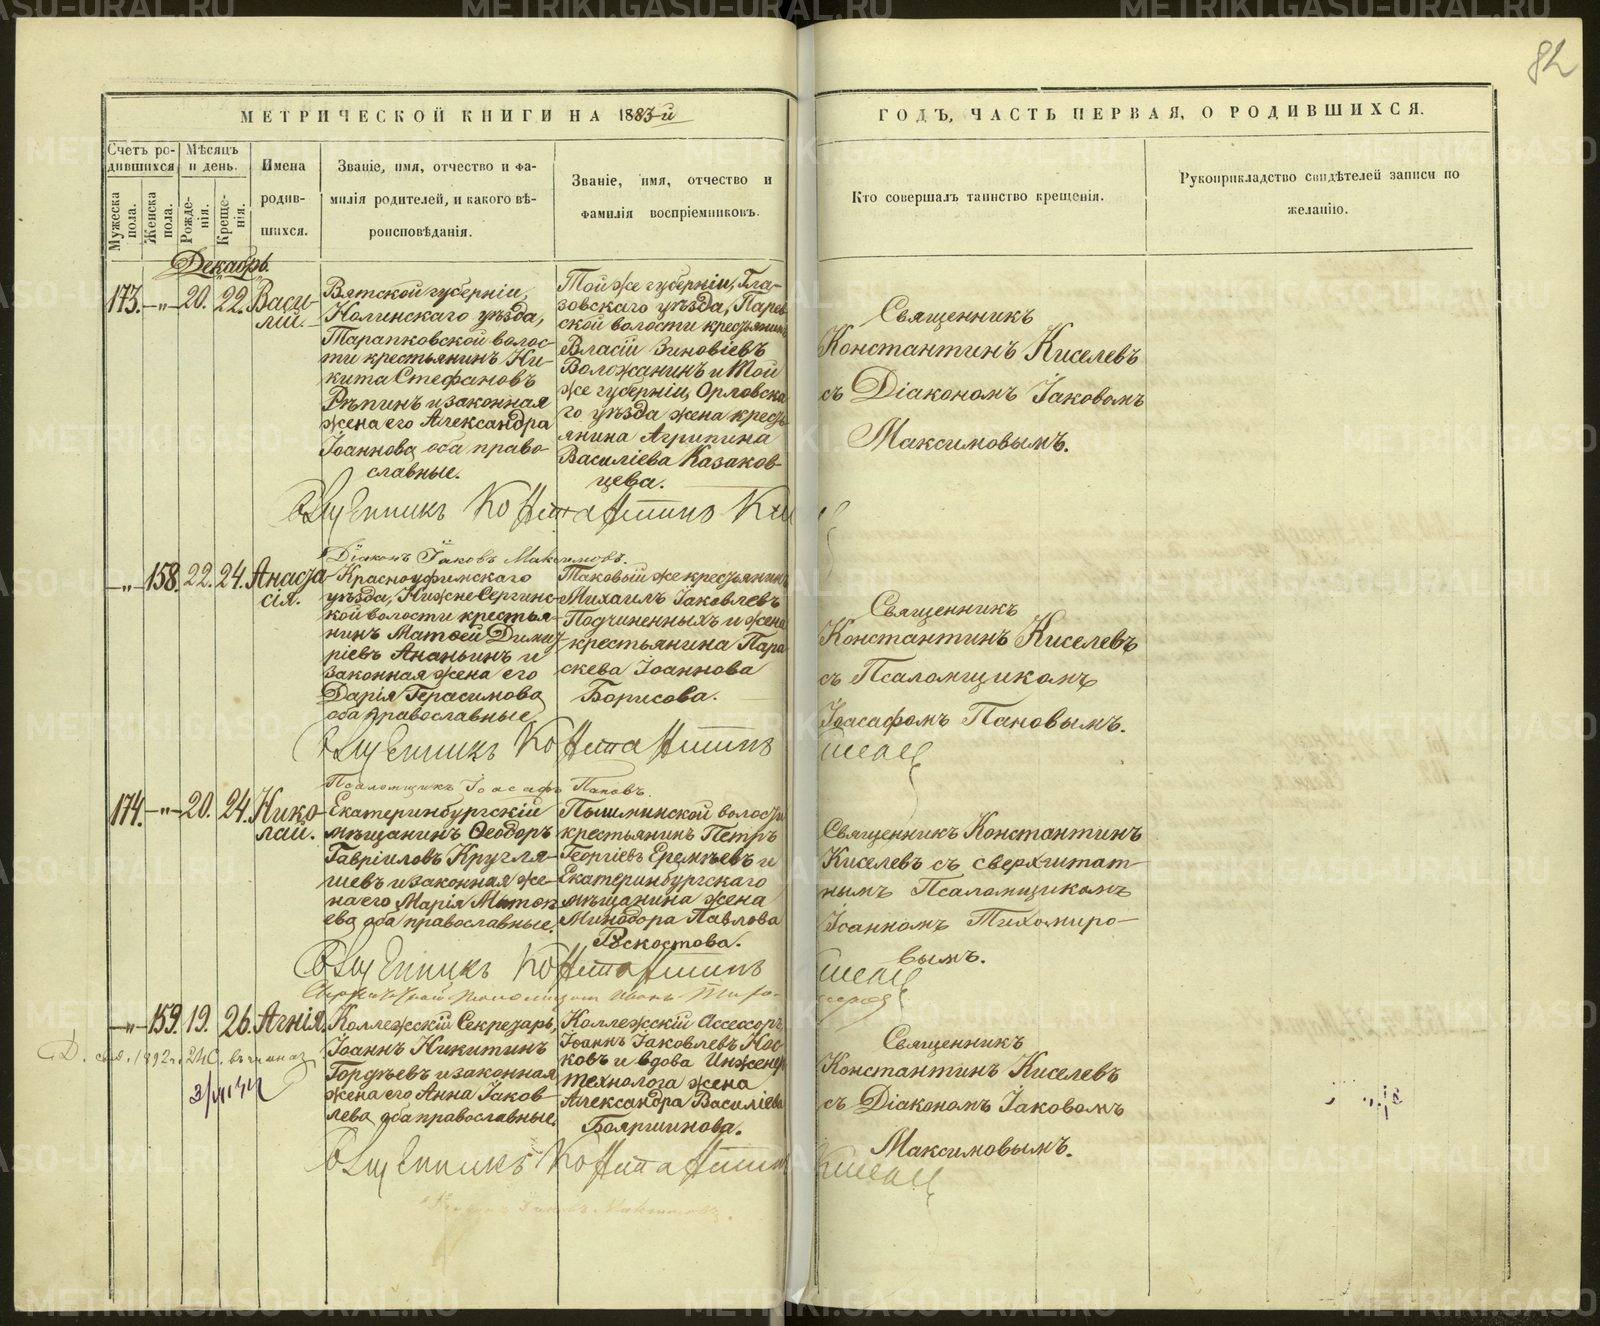 82
МЕТРИЧЕСКОЙ КНИГИ НА 1883-й
ГОДЪ, ЧАСТЬ ПЕРВАЯ, О РОДИВШИХСЯ.
Счетъ ро-
дившихся
Мужеска пола.
Женска пола.
Мѣсяцъ
и день.
Рожде-
нія.
Креще-
нія.
Имена
родив-
шихся.
Званіе, имя, отчество и фа-
милія родителей, и какого вѣ-
роисповѣданія.
Званіе, имя, отчество и
фамилія воспріемниковъ.
Кто совершалъ таинство крещенія.
Рукоприкладство свидѣтелей записи по
желанію.
Декабрь.
173. —„— 20. 22. Васи-
лій.
Вятской губерніи,
Нолинскаго уѣзда,
Тарапковской волос-
ти крестьянинъ Ни-
кита Стефановъ
Рѣпинъ и законная
жена его Александра
Іоаннова, оба право-
славные.
Той же губерніи, Гла-
зовскаго уѣзда,
ской волости крестьянинъ
Власій Зиновіевъ
Воложанинъ и той
же губерніи, Орловска
го уѣзда жена кресть
янина Агрипина
Василіева Казаков-
цева.
Священникъ
Константинъ Киселевъ
съ Діакономъ Іаковомъ
Максимовымъ.
Священникъ Константинъ
Діаконъ Іаковъ Максимовъ.
—„— 158. 22. 24. Анаста
сія.
Красноуфимскаго
уѣзда, Нижне-Сергинс-
кой волости крестья-
нинъ Матѳей Димит
ріевъ Ананьинъ и
законная жена его
Дарія Герасимова,
оба православные.
Таковый же крестьянинъ
Михаилъ Іаковлевъ
Подчиненныхъ и жена
крестьянина Пара
скева Іоаннова
Борисова.
Священникъ
Константинъ Киселевъ
съ Псаломщикомъ
Іоасафомъ Пановымъ.
Священникъ Константинъ
Псаломщикъ Іоасафъ Пановъ.
174. —„— 20. 24. Нико
лай.
Екатеринбургскій
мѣщанинъ Ѳеодоръ
Гавріиловъ Кругля-
шевъ и законная же-
на его Марія
ева, оба православные.
Пышминской волости
крестьянинъ Петръ
Георгіевъ Еремѣевъ и
Екатеринбургскаго
мѣщанина жена
Минодора Павлова
Роскостова.
Священникъ Константинъ
Киселевъ съ сверхштат-
нымъ Псаломщикомъ
Іоанномъ Тихомиро-
вымъ.
Священникъ Константинъ
—„— 159. 19. 26. Агнія.
Коллежскій Секретарь,
Іоаннъ Никитинъ
Гордѣевъ и законная
жена его Анна Іаков-
лева, оба православные.
Коллежскій Ассесоръ,
Іоаннъ Іаковлевъ Нос-
ковъ и вдова Инженер
технолога жена
Александра Василіева
Бояршинова.
Священникъ
Константинъ Киселевъ
съ Діакономъ Іаковомъ
Максимовымъ.
Священникъ Константинъ